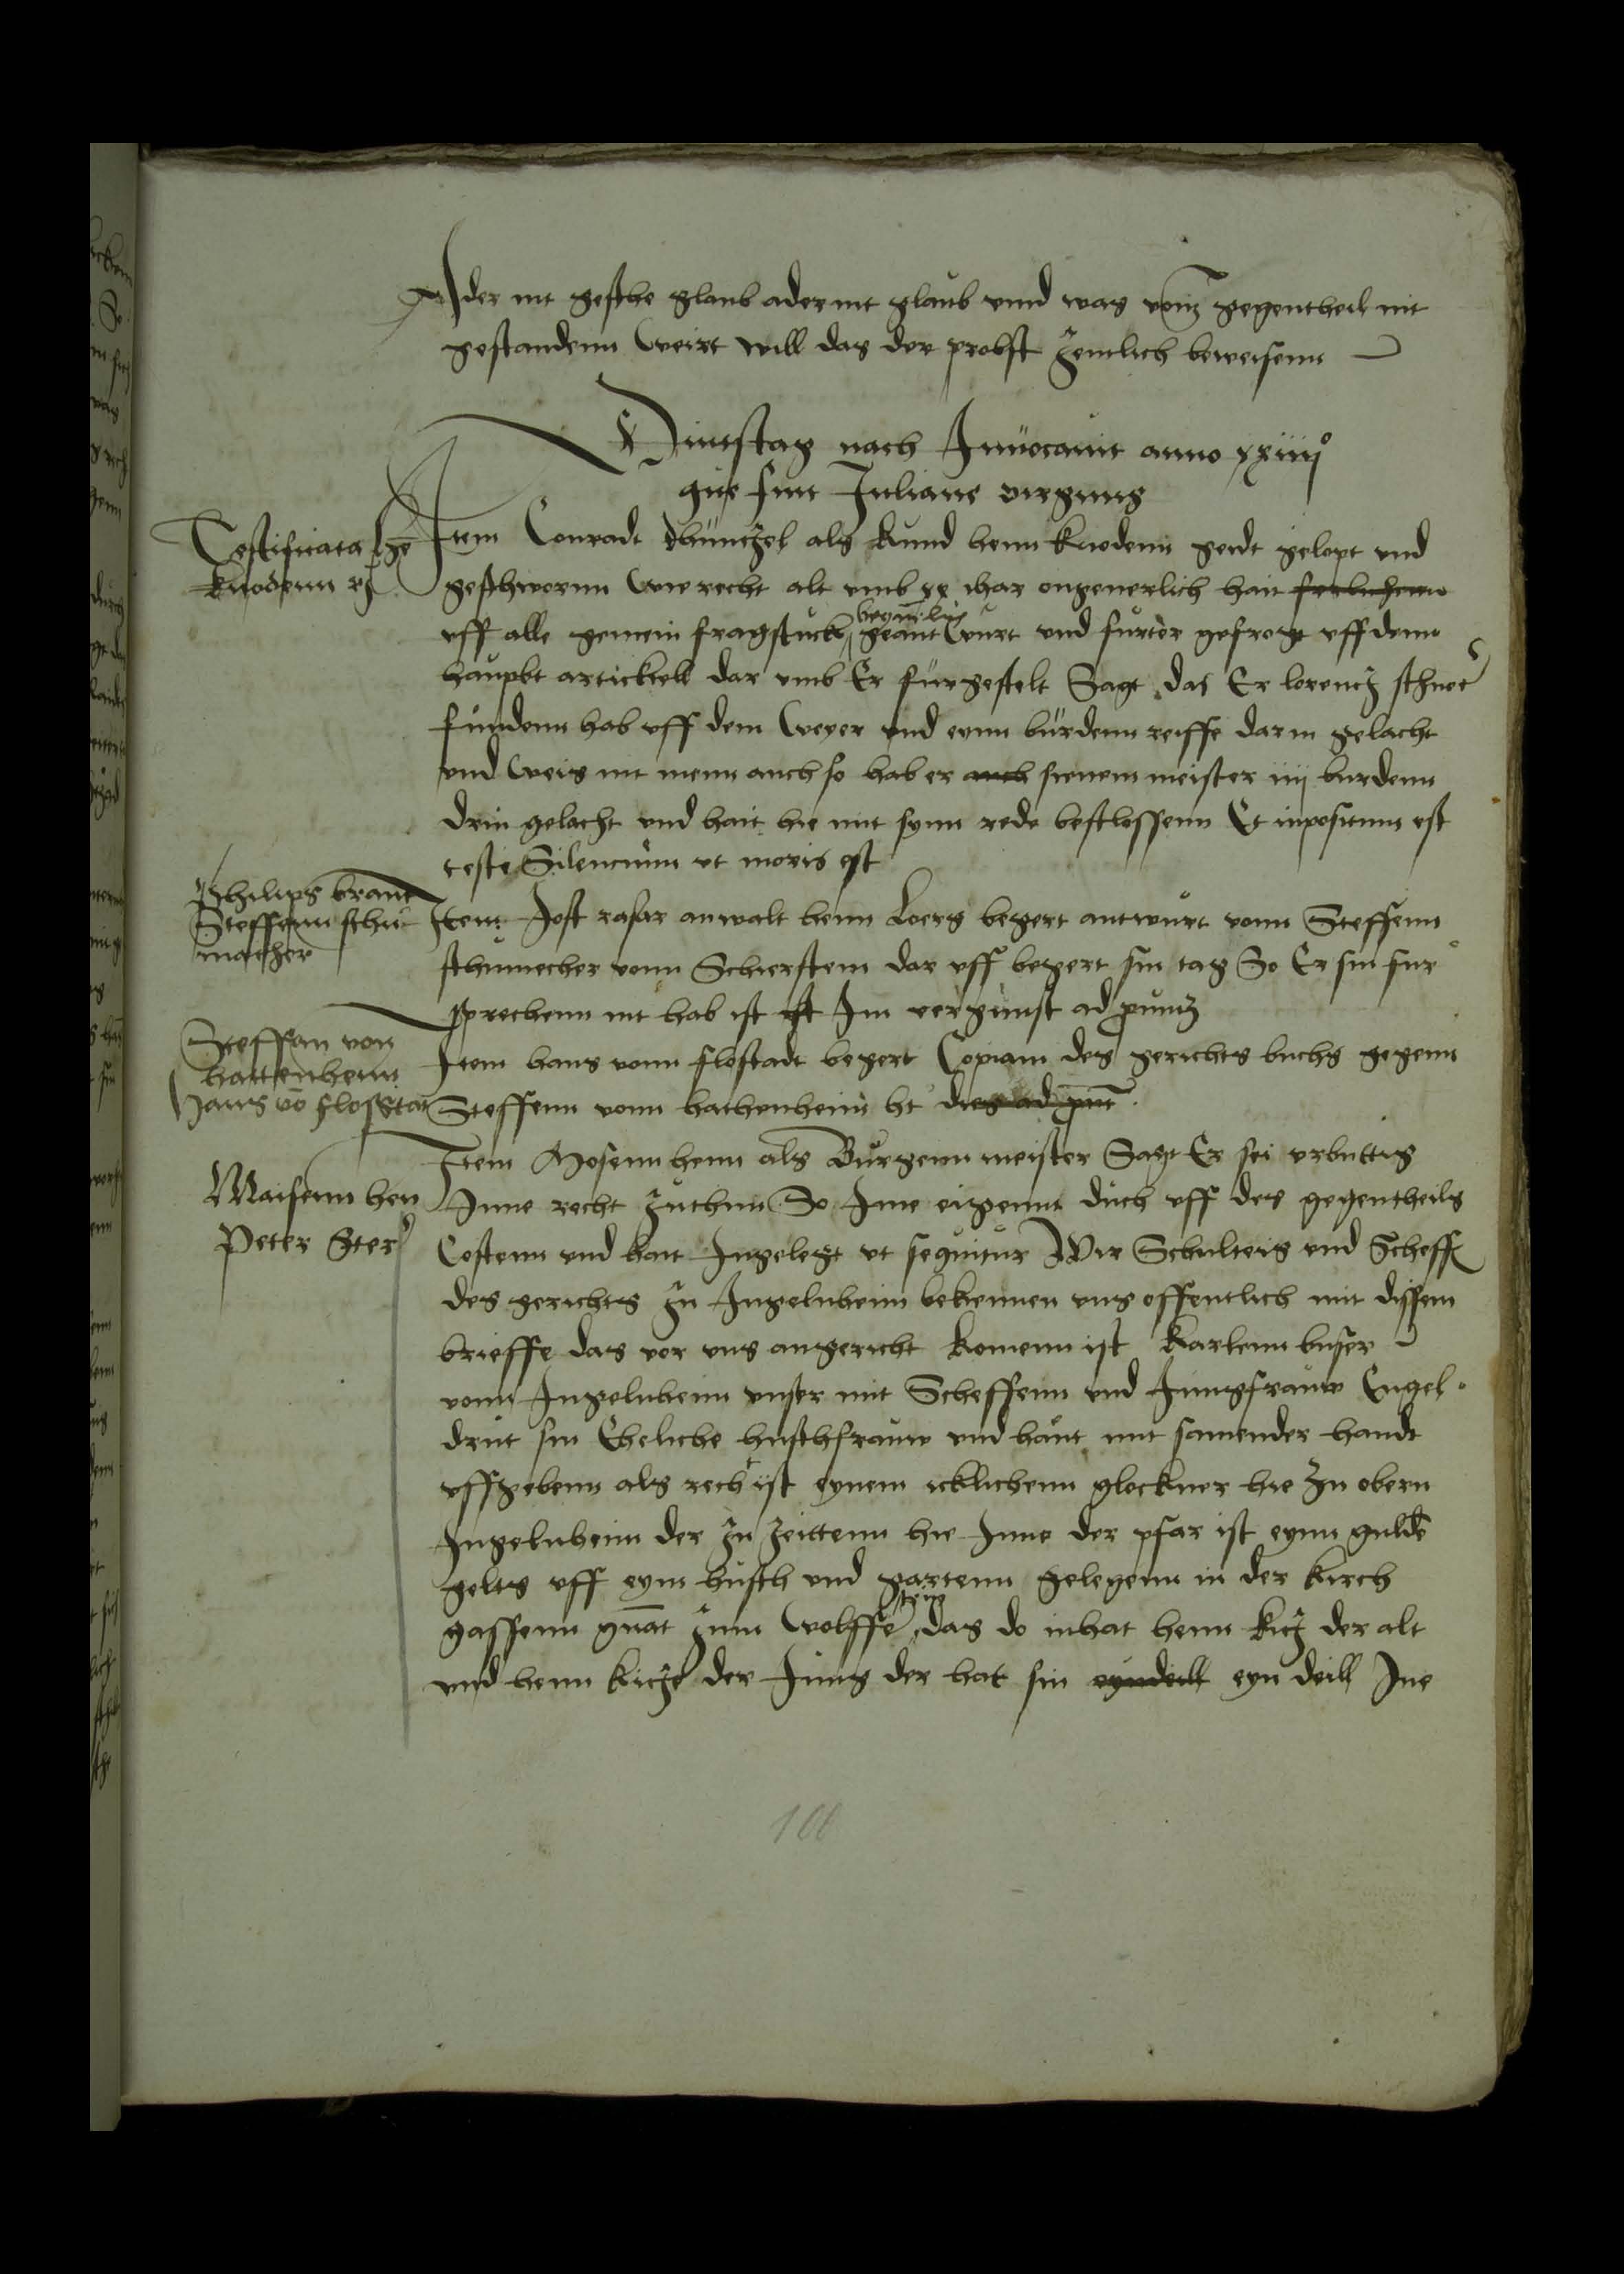 Ader nit gesche glaub ader nit glaub vnnd was vom gegentheil nit
gestandenn weirt will das der probst zemlich beweisenn
Dinstag nach Inuocauit anno xxiiijº
que fuit Juliane virginis
Testificata he
knodenn
Item Conradt als kund henn knodenn geidt gelopt vnd
geschwornn wie recht alt vmb xx ihar ongeuerlich hait
vff alle gemein fragstuck geantwurt vnd furter gefrogt vff denn
haupbt artickell dar vmb Er furgestelt Sagt das Er lorentz schnod
fundenn hab vff dem weyer vnd eynn burdenn reiffe dar in gelacht
vnd weis nit menn auch so hab er auch sienem meister iiij burdenn
drin gelacht vnd hait hie mit synn rede beschlossenn Et inpositum est
teste Silencium vt moris est
Philips brant
Steffenn schu
macher
Item Jost rasar anwalt henn Loers begert antwurt vonn Steffenn
schumecher vonn Schierstein dar vff begert sin tag So Er sin fur
sprechenn nit hab ist Im vergunst ad
Steffan von
hattenheim
Hans vo flostat
Item hans vonn flostadt begert Copiam des gerichts buchs gegenn
Steffenn vonn hathenheim ht dies ad
Maisenn hen
Peter Ster
Item Mosenn henn als Burgenn meister Sagt Er sei vrbuttig
Inne recht zuthun So Ime eigennt duch vff des gegentheils
Costenn vnd hait Ingelegt vt sequitur Wir Schulteis vnd Scheff
des gerichts zu Ingelnheim bekennen vns offentlich mit dissem
brieffe das vor vns angericht komenn ist karlenn buser
vonn Ingelnheim vnser mit Scheffenn vnd Jungfrauw Engel
drut sin Eheliche husthfrauw vnd haut mit samender handt
vffgebenn als recht ist eynem icklichenn glockner hie zu obern
Ingelnheim der zu zeittenn hie Inne der pfar ist eynn gulde
gelts vff eym husth vnd gartenn gelegenn in der kirch
gassenn gnat zum wolffe das do inhat henn kitz der alt
vnd henn kitze der Jung der hat sin eyndeill eyn deill Ine
100